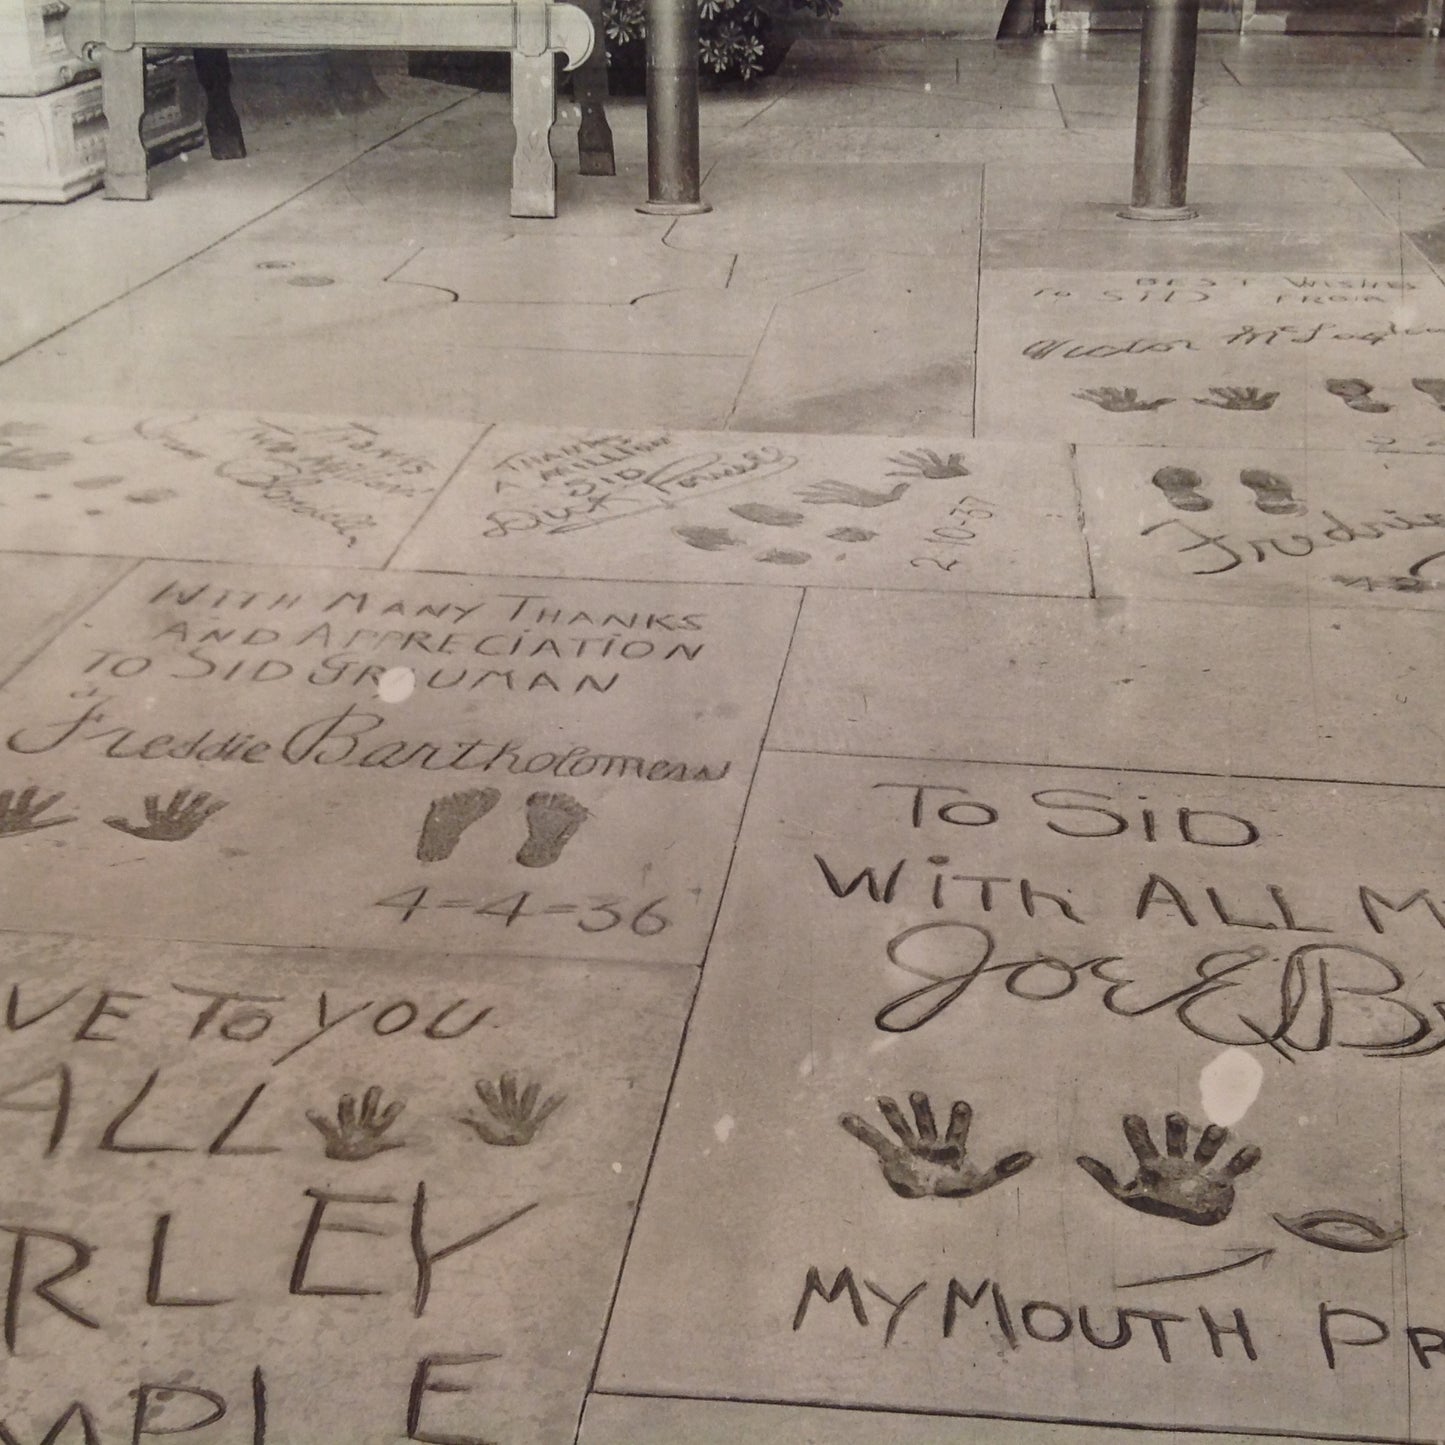 BEST WISHES
TO SID FROM
Victor
THANKS
TWO Million
Joan Blondell
THANKS
A MILLION
SID
Dick Powell
2-10-37
Fredric
WITH MANY THANKS
AND APPRECIATION
TO SID GRAUMAN
Freddie Bartholomew
4=4=36
TO SiD
WiTh ALL M
Joe E B
MY MOUTH PR
VE To YOU
ALL
RLEY
MPLE